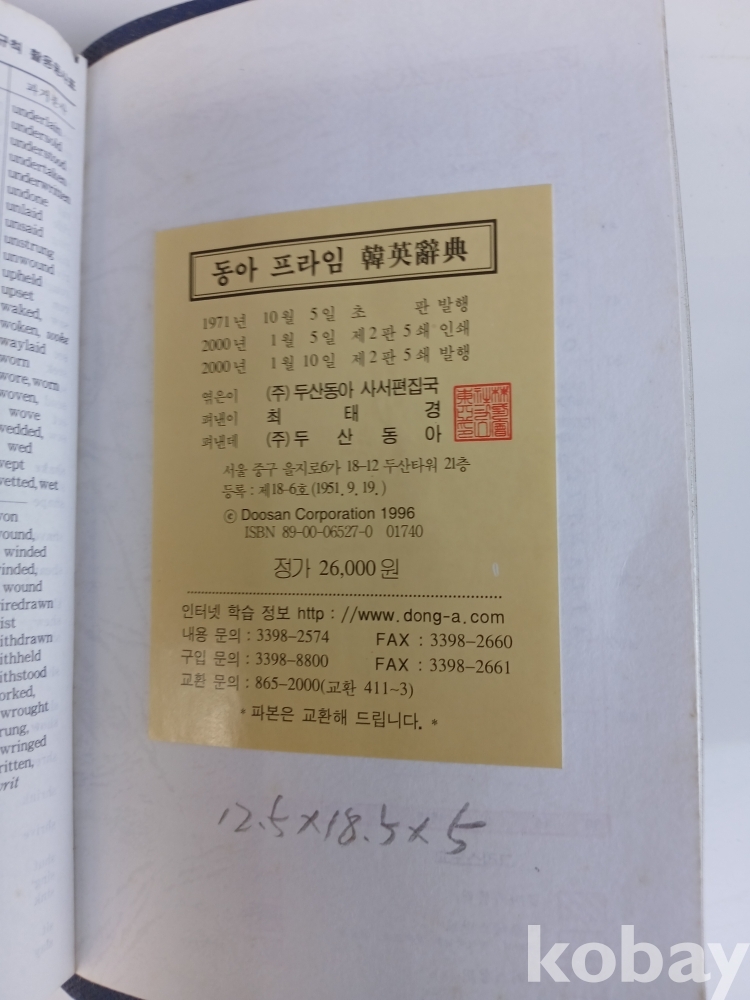 과거분사
underlain
undersold
understood
undertaken
underwritten
undone
unlaid
unsaid
unstrung
unwound
upheld
upset
waked,
woken, sooke
waylaid
worn
wore, worn
woven,
wove
wedded,
wed
wept
wetted, wet
won
wound,
winded
winded,
wound
wiredrawn
wist
withdrawn
withheld
withstood
worked,
wrought
wrung,
wringed
written,
writ
동아 프라임 韓英辭典
1971년 10월 5일 초 판 발행
2000년 1월 5일 제2판 5쇄 인쇄
2000년 1월 10일 제2판 5쇄 발행
엮은이 (주)두산동아 사서편집국
펴낸이 최 태 경
펴낸데 (주)두 산 동 아
서울 중구 을지로6가 18-12 두산타워 21층
등록 : 제18-6호(1951. 9. 19.)
ⓒ Doosan Corporation 1996
ISBN 89-00-06527-0 01740
정가 26,000원
인터넷 학습 정보 http : //www.dong-a.com
내용 문의 : 3398-2574 FAX : 3398-2660
구입 문의 : 3398-8800 FAX : 3398-2661
교환 문의 : 865-2000(교환 411~3)
* 파본은 교환해 드립니다. *
12.5×18.5×5
kobay